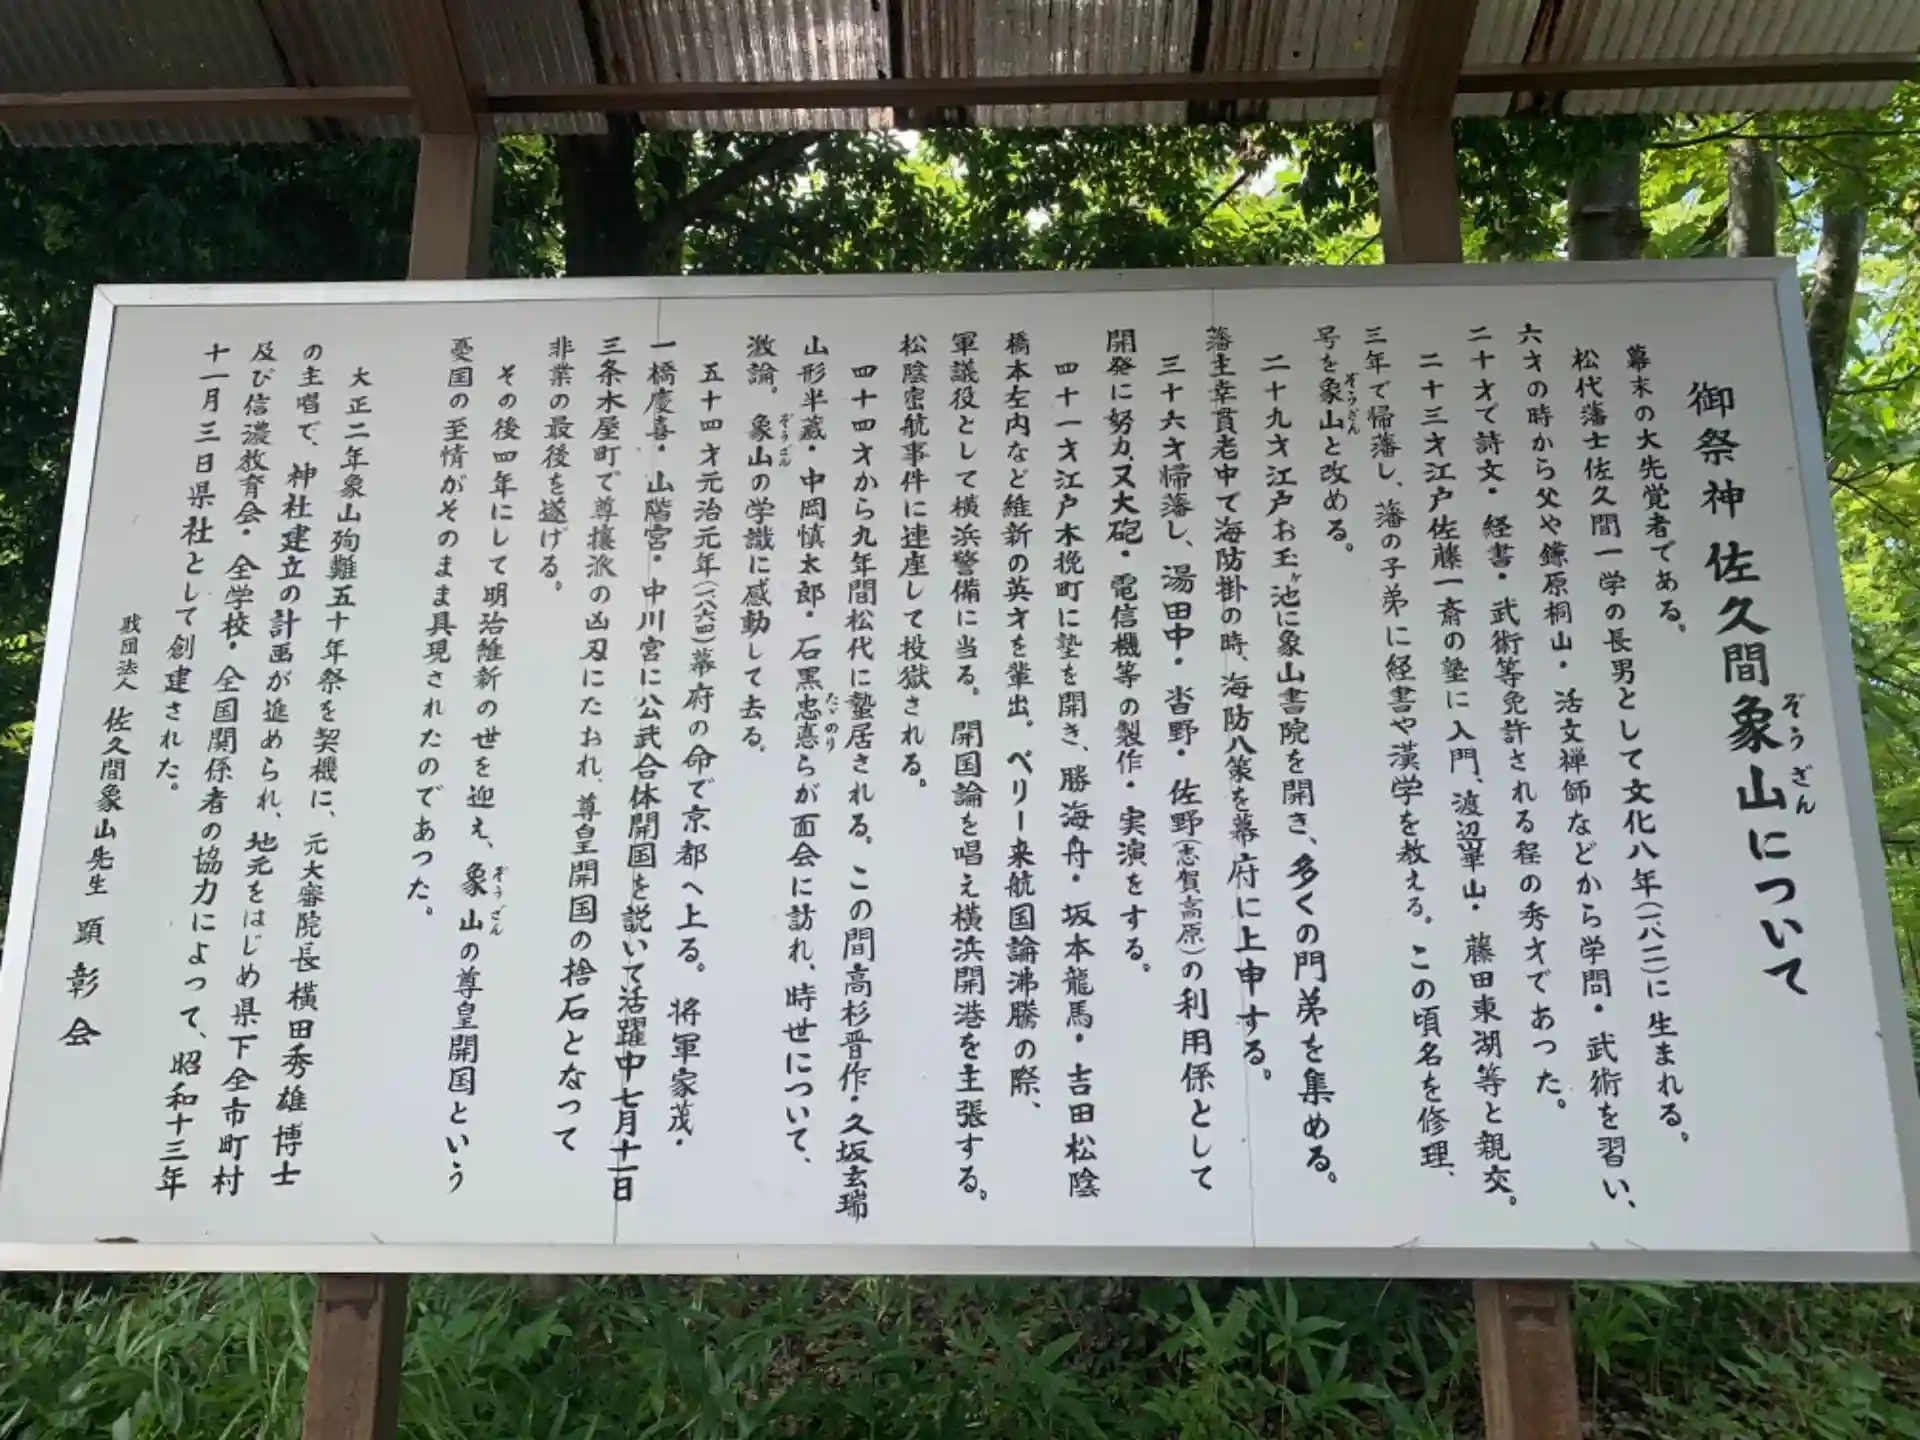 御祭神 佐久間象山について
ぞうざん
幕末の大先覚者である。
松代藩士佐久間一学の長男として文化八年(一八一一)に生まれる。
六才の時から父や鎌原桐山・活文禅師などから学問・武術を習い、
二十才で詩文・経書・武術等免許される程の秀才であった。
二十三才江戸佐藤一斎の塾に入門、渡辺崋山・藤田東湖等と親交。
三年で帰藩し、藩の子弟に経書や漢学を教える。この頃名を修理、
号を象山と改める。
ぞうざん
二十九才江戸お玉ヶ池に象山書院を開き、多くの門弟を集める。
藩主幸貫老中て海防掛の時、海防八策を幕府に上申する。
三十六才帰藩し、湯田中・沓野・佐野(志賀高原)の利用係として
開発に努力、又大砲・電信機等の製作・実演をする。
四十一才江戸木挽町に塾を開き、勝海舟・坂本龍馬・吉田松陰
橋本左内など維新の英才を輩出。ペリー来航国論沸騰の際、
軍議役として横浜警備に当る。開国論を唱え横浜開港を主張する。
松陰密航事件に連座して投獄される。
四十四才から九年間松代に蟄居される。この間高杉晋作・久坂玄瑞
山形半蔵・中岡慎太郎・石黒忠悳らが面会に訪れ、時世について、
たゞのり
激論。象山の学識に感動して去る。
ぞうざん
五十四才元治元年(一八六四)幕府の命で京都へ上る。将軍家茂・
一橋慶喜・山階宮・中川宮に公武合体開国を説いて活躍中七月十一日
三条木屋町で尊攘派の凶刃にたおれ、尊皇開国の捨石となって
非業の最後を遂げる。
その後四年にして明治維新の世を迎え、象山の尊皇開国という
ぞうざん
憂国の至情がそのまま具現されたのであつた。
大正二年象山殉難五十年祭を契機に、元大審院長横田秀雄博士
の主唱で、神社建立の計画が進められ、地元をはじめ県下全市町村
及び信濃教育会・全学校・全国関係者の協力によって、昭和十三年
十一月三日県社として創建された。
財団法人 佐久間象山先生 顕彰会